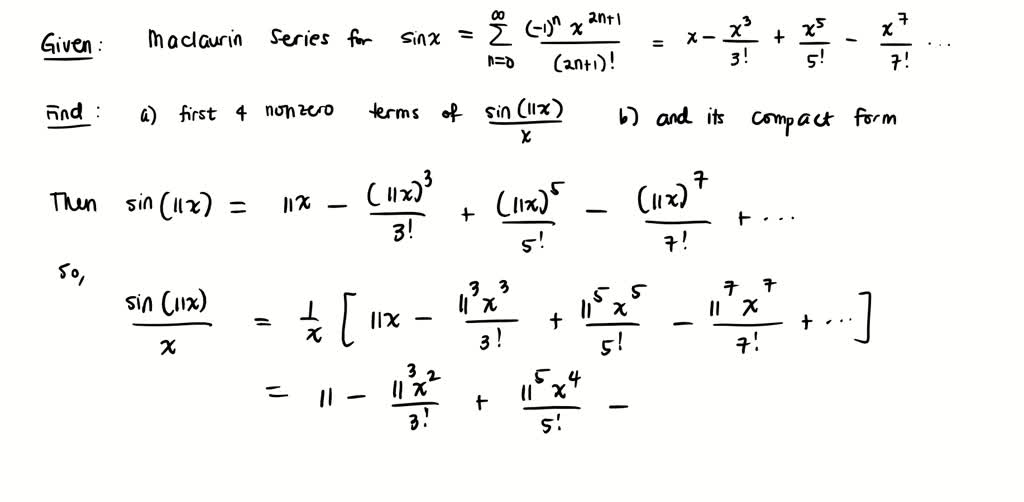 Given: Maclaurin Series for sinx = ∑_{n=0}^{∞} (-1)^n x^{2n+1} / (2n+1)! = x - x^3/3! + x^5/5! - x^7/7! ...
Find: a) first 4 nonzero terms of sin(11x)/x b) and its compact form
Then sin(11x) = 11x - (11x)^3/3! + (11x)^5/5! - (11x)^7/7! + ...
so,
sin(11x)/x = 1/x [ 11x - 11^3 x^3/3! + 11^5 x^5/5! - 11^7 x^7/7! + ... ]
= 11 - 11^3 x^2/3! + 11^5 x^4/5! -